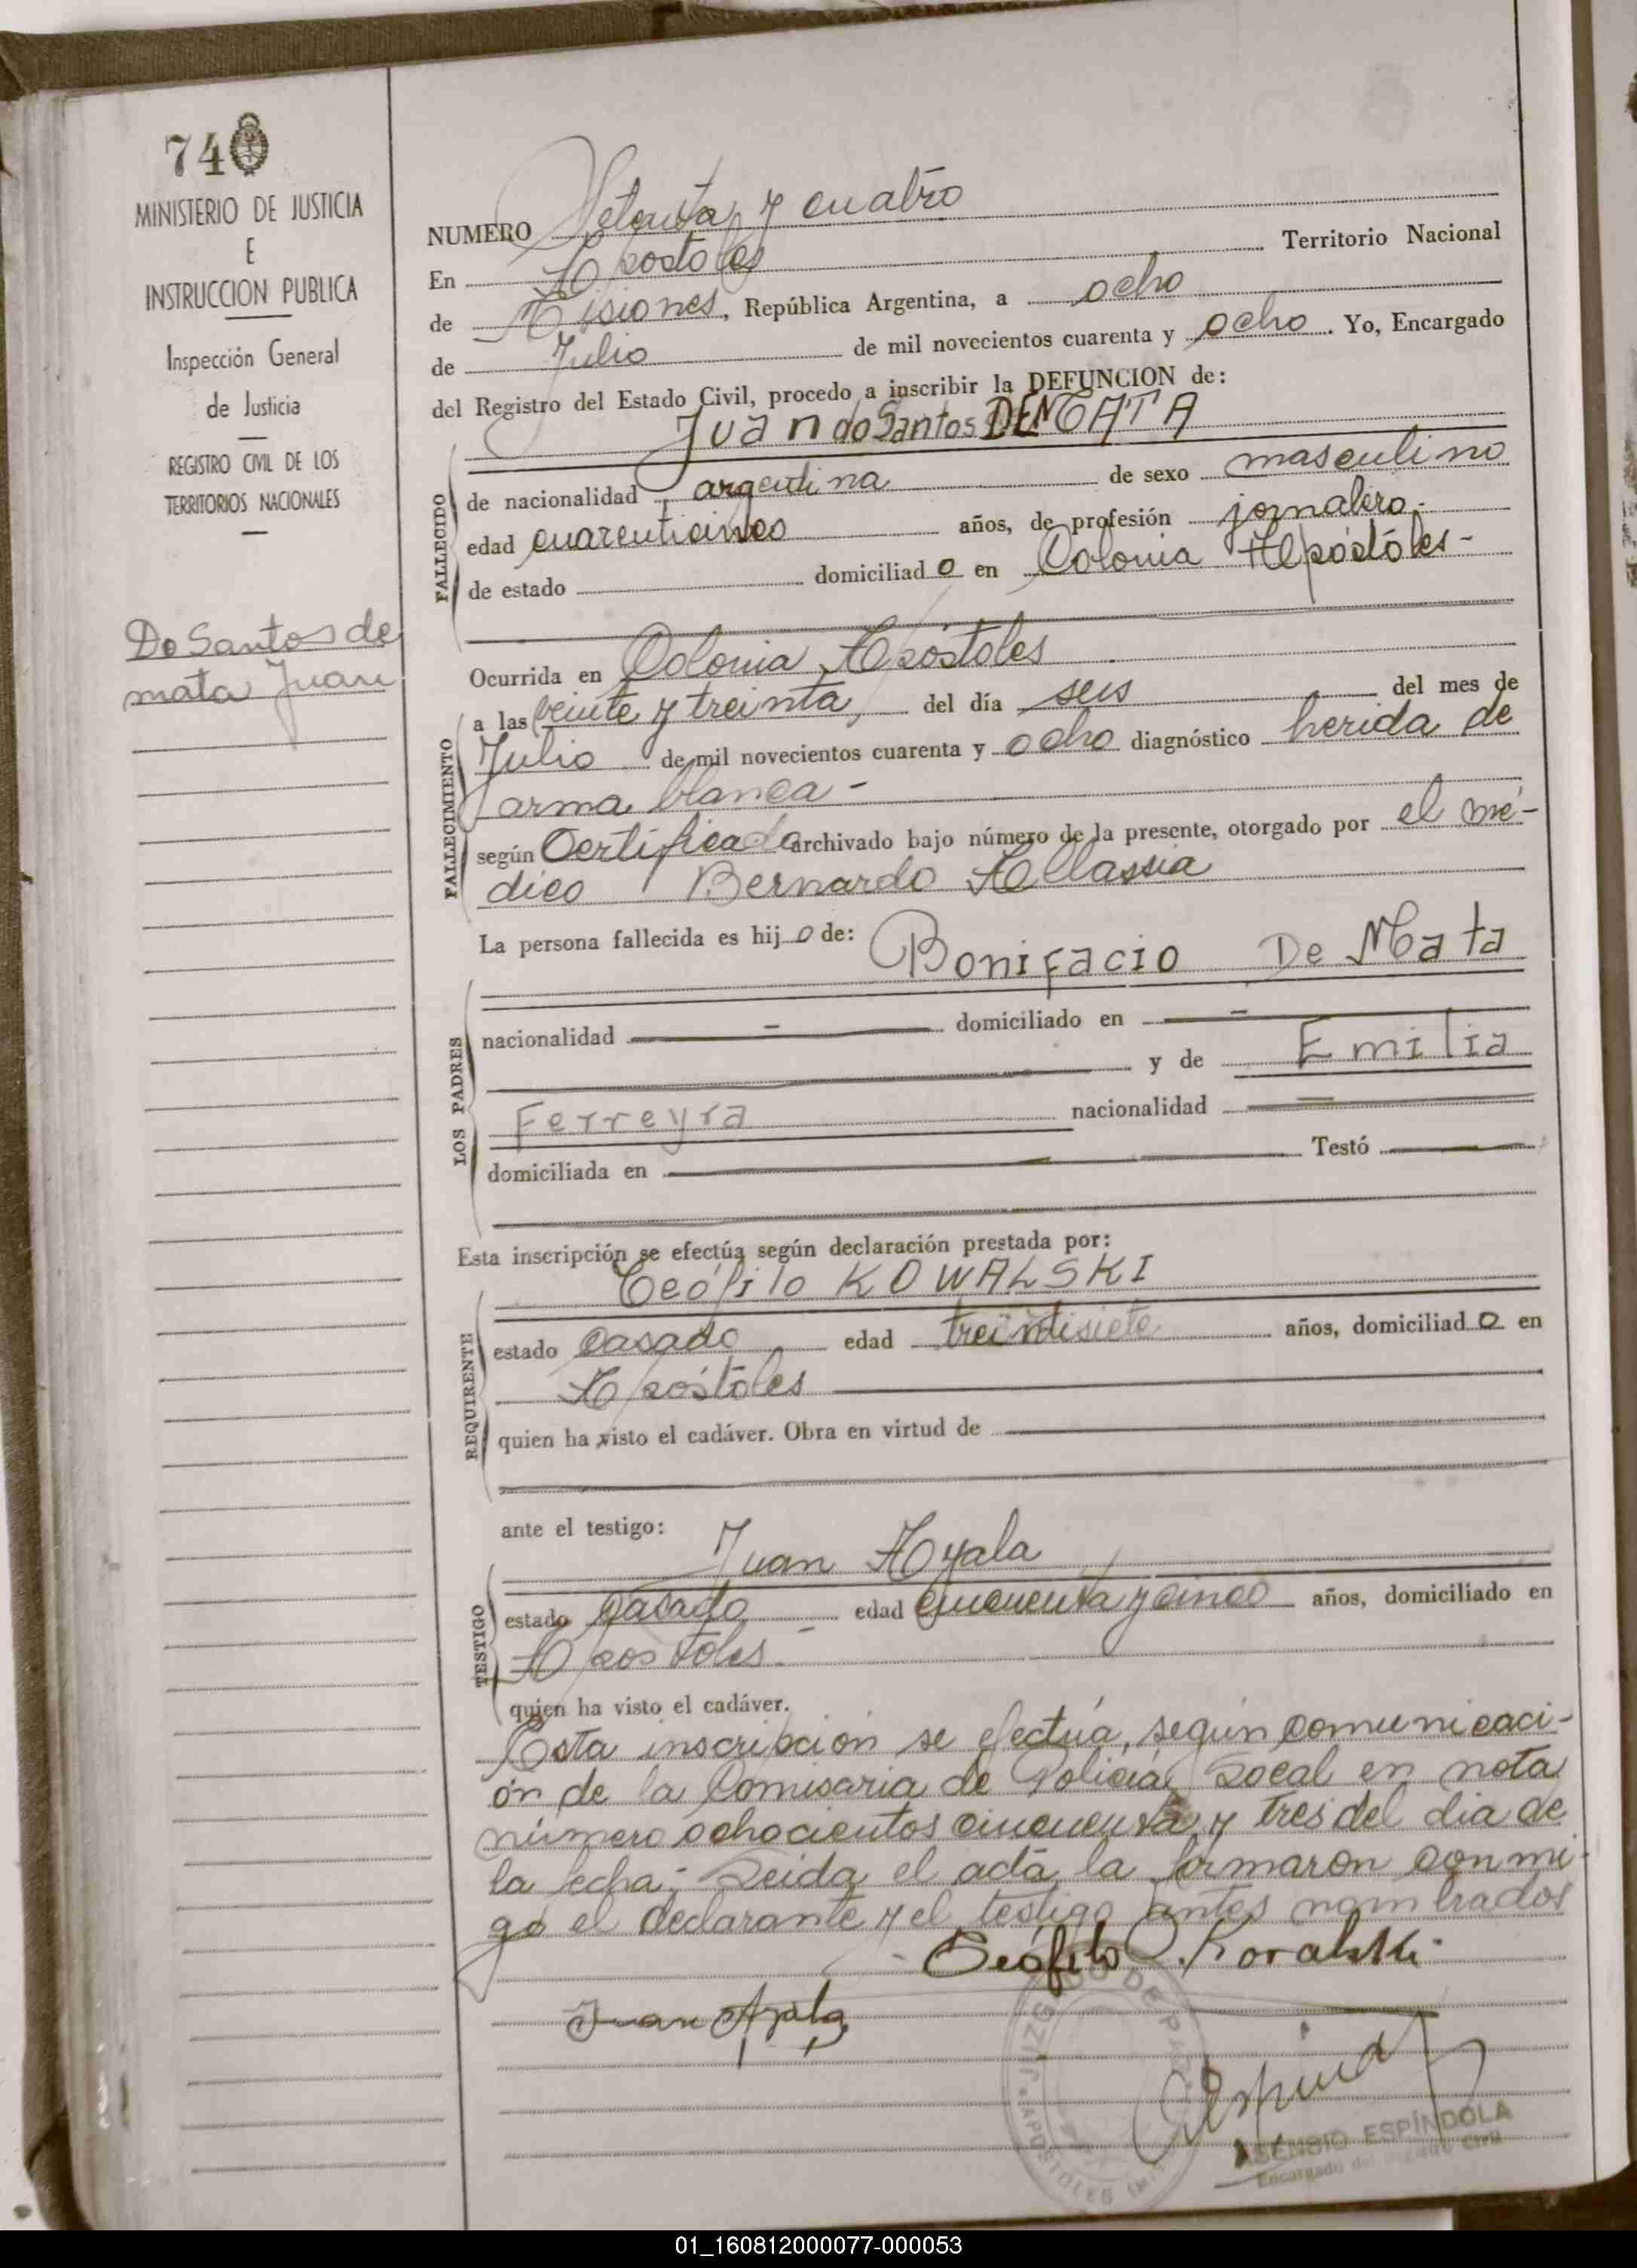 74
MINISTERIO DE JUSTICIA
E
INSTRUCCION PUBLICA
Inspección General
de Justicia
REGISTRO CIVIL DE LOS
TERRITORIOS NACIONALES
Do Santos de
mata Juan
NUMERO Setenta y cuatro
En Apostoles Territorio Nacional
de Misiones, República Argentina, a ocho
de Julio de mil novecientos cuarenta y ocho. Yo, Encargado
del Registro del Estado Civil, procedo a inscribir la DEFUNCION de:
Juan do Santos DE MATA
FALLECIDO
de nacionalidad argentina de sexo masculino
edad cuarenticinco años, de profesión jornalero.-
de estado domiciliado en Colonia Apóstoles-
Ocurrida en Colonia Apóstoles
FALLECIMIENTO
a las veinte y treinta, del día seis del mes de
Julio de mil novecientos cuarenta y ocho diagnóstico herida de
arma blanca-
según Certificado archivado bajo número de la presente, otorgado por el mé-
dico Bernardo Allassia
La persona fallecida es hijo de: Bonifacio De Mata
LOS PADRES
nacionalidad - domiciliado en -
y de Emilia
Ferreyra nacionalidad
domiciliada en Testó
Esta inscripción se efectúa según declaración prestada por:
Teófilo KOWALSKI
REQUIRENTE
estado casado edad treintisiete años, domiciliado en
Apóstoles
quien ha visto el cadáver. Obra en virtud de
ante el testigo: Juan Ayala
TESTIGO
estado casado edad cincuenta y cinco años, domiciliado en
Apostoles.-
quien ha visto el cadáver.
Esta inscripción se efectúa, según comunicaci-
ón de la Comisaria de Policia Local en nota
número ochocientos cincuenta y tres del dia de
la fecha; Leida el acta la firmaron conmi-
go el declarante y el testigo antes nombrados
Teófilo Kovalski
Juan Ayala
JUZGADO DE PAZ
APOSTOLES
ASENSIO ESPÍNDOLA
Encargado del Registro Civil
01_160812000077-000053